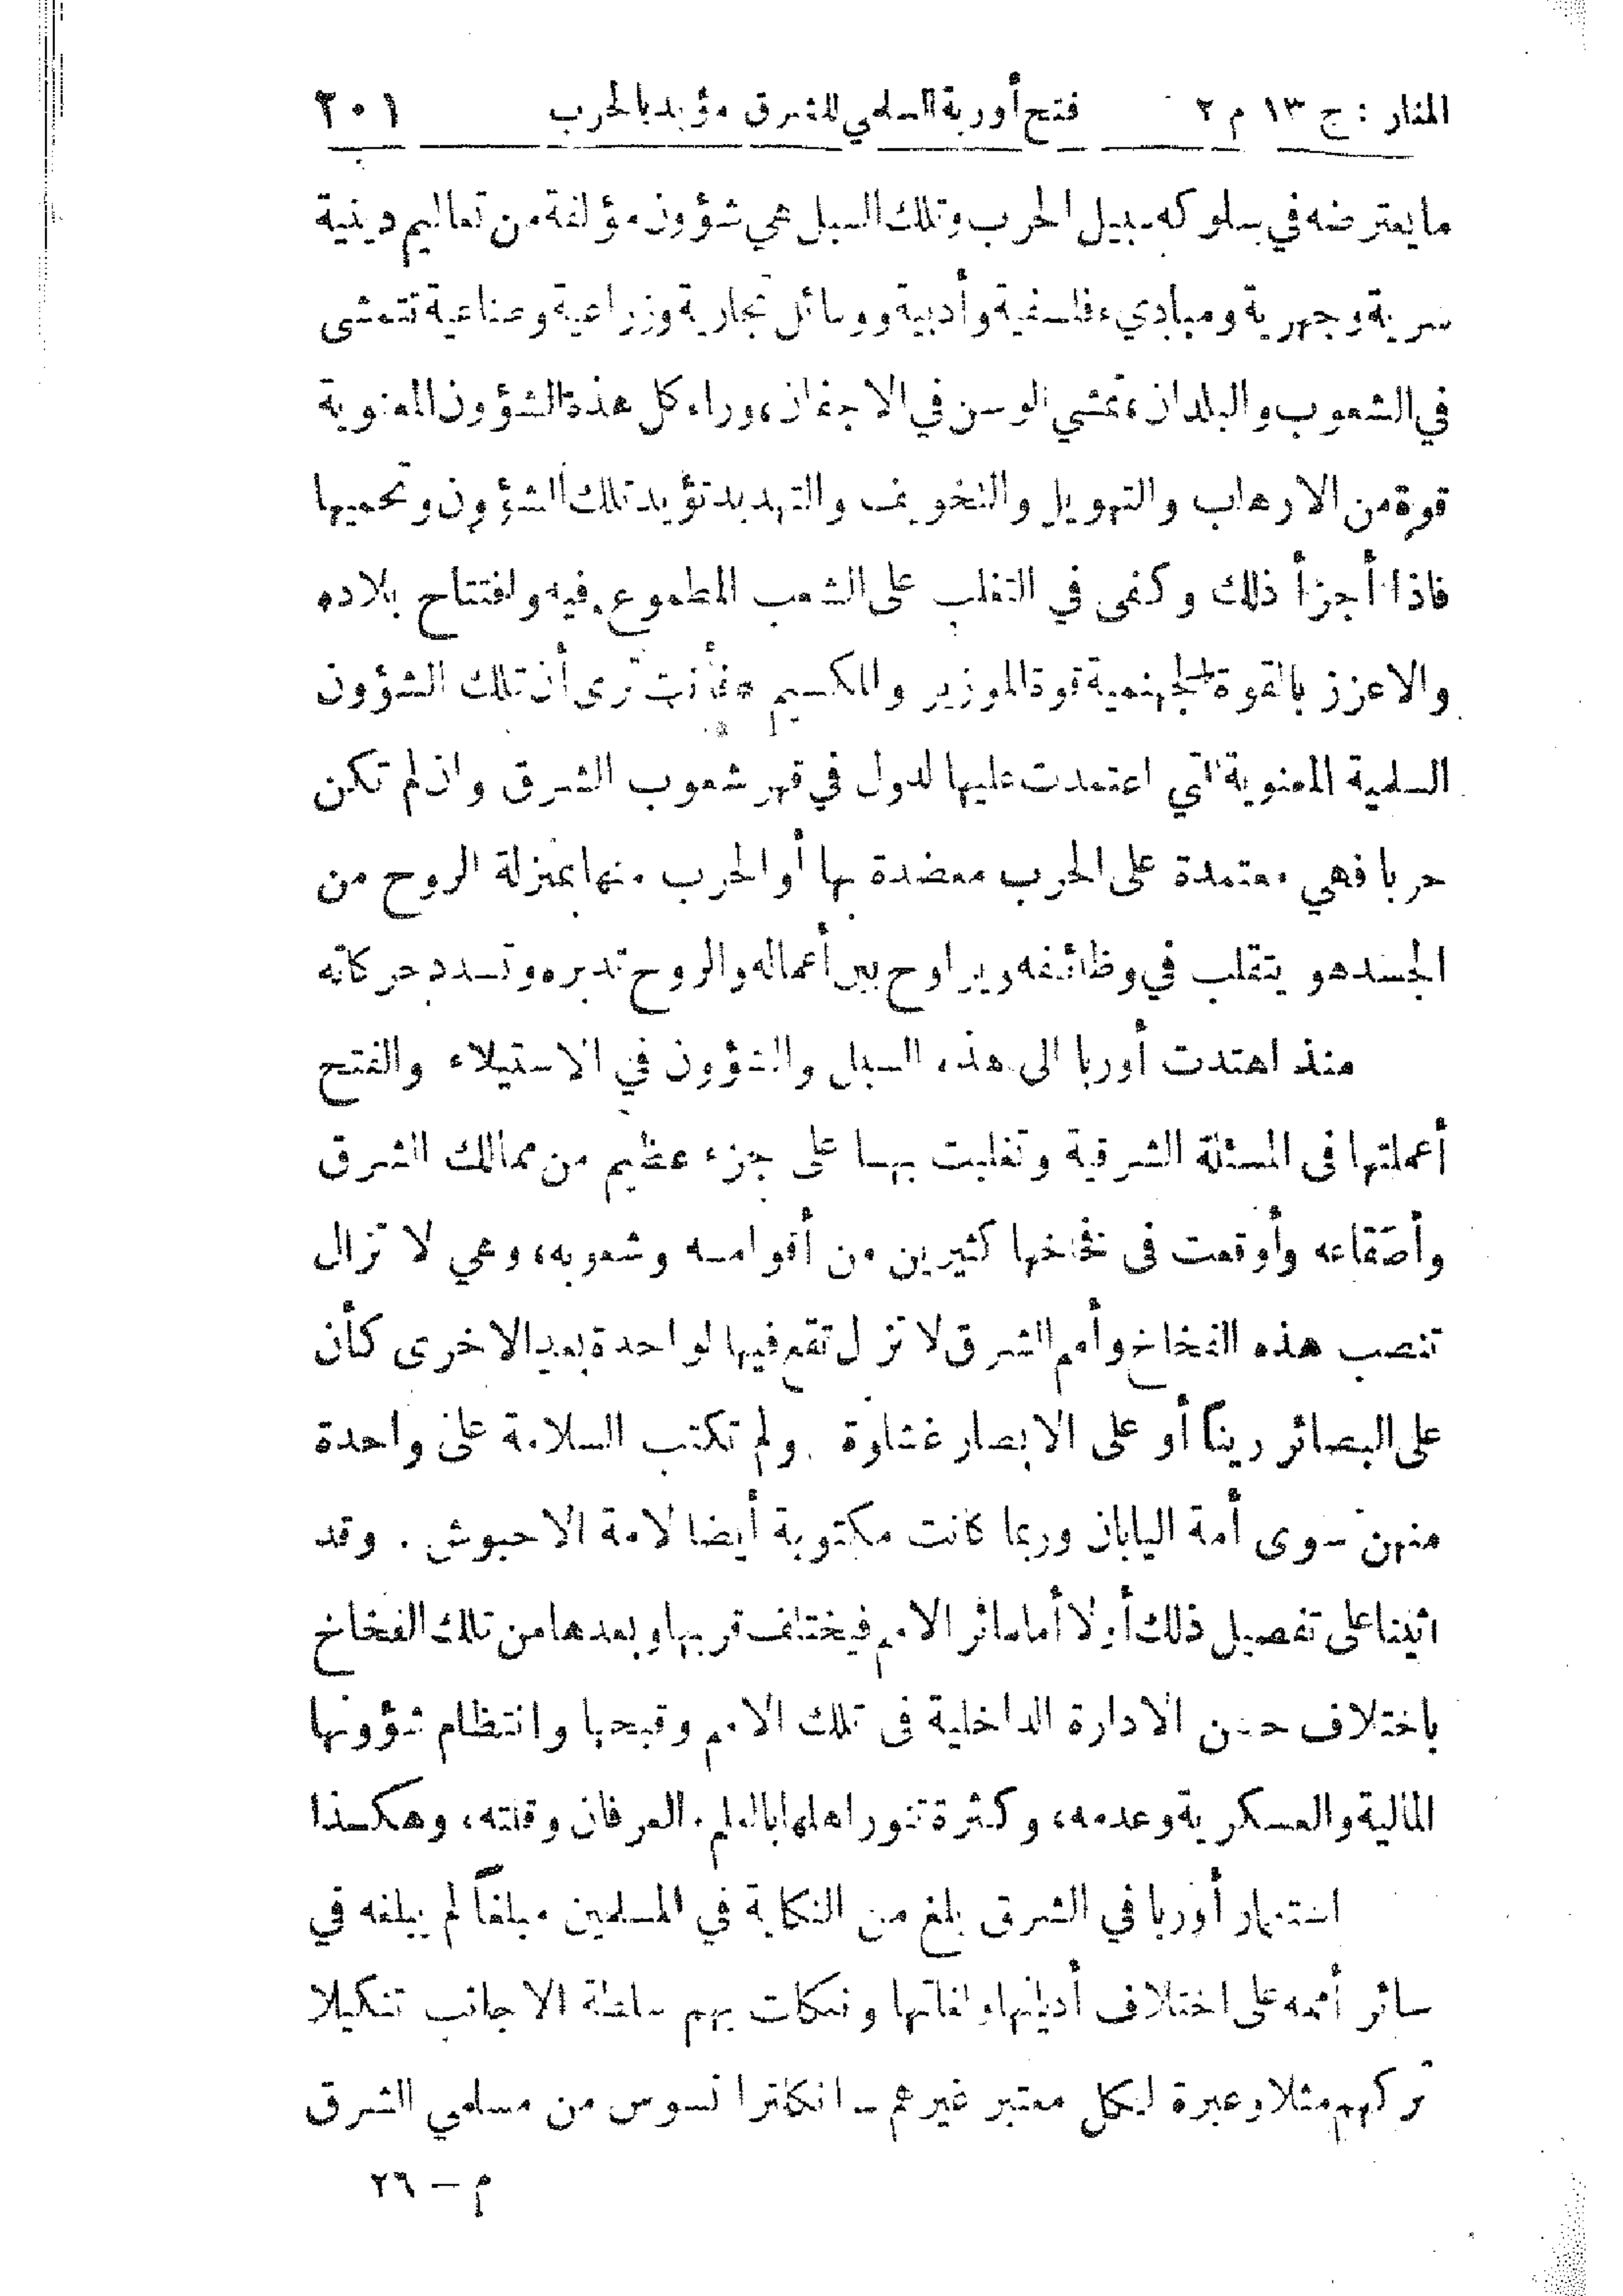 المنار : ج ١٣ م ٢ فتح أوربة السلمي للشرق مؤيد بالحرب ٢٠١
ما يعترضه في سلوكه سبيل الحرب وتلك السبل هي شؤون مؤلفة من تعاليم دينية
سرية وجهرية ومبادىء فلسفية وأدبية ووسائل تجارية وزراعية وصناعية تتمشى
في الشعوب والبلدان، تمشي الوسن في الاجفان، وراء كل هذه الشؤون المعنوية
قوة من الارهاب والتهويل والتخويف والتهديد تؤيد تلك الشؤون وتحميها
فاذا أجزأ ذلك وكفى في التغلب على الشعب المطموع فيه وافتتاح بلاده
والا عزز بالقوة الجهنمية قوة الموزير والمكسيم * فأنت ترى أن تلك الشؤون
السلمية المعنوية التي اعتمدت عليها الدول في قهر شعوب الشرق وان لم تكن
حربا فهي معتمدة على الحرب معضدة بها أو الحرب منها بمنزلة الروح من
الجسد هو يتقلب في وظائفه ويراوح بين أعماله والروح تدبره وتسدد حركاته
منذ اهتدت أوربا الى هذه السبل والشؤون في الاستيلاء والفتح
أعملتها فى المسئلة الشرقية وتغلبت بها على جزء عظيم من ممالك الشرق
وأصقاعه وأوقعت فى فخاخها كثيرين من أقوامه وشعوبه، وهي لا تزال
تنصب هذه الفخاخ وأمم الشرق لا تزل تقع فيها الواحدة بعد الاخرى كأن
على البصائر ريناً أو على الابصار غشاوة ولم تكتب السلامة على واحدة
منهن سوى أمة اليابان وربما كانت مكتوبة أيضا لامة الاحبوش . وقد
اتينا على تفصيل ذلك أولا أما سائر الامم فيختلف قربها وبعدها من تلك الفخاخ
باختلاف حسن الادارة الداخلية فى تلك الامم وقبحها وانتظام شؤونها
المالية والعسكرية وعدمه، وكثرة تنور اهلها بالعلم والعرفان وقلته، وهكذا
استعمار أوربا في الشرق بلغ من النكاية في المسلمين مبلغاً لم يبلغه في
سائر أممه على اختلاف أديانها ولغاتها ونكلت بهم سلطة الاجانب تنكيلا
تركهم مثلا وعبرة لكل معتبر غيرهم ــ انكلترا تسوس من مسلمي الشرق
م — ٢٦